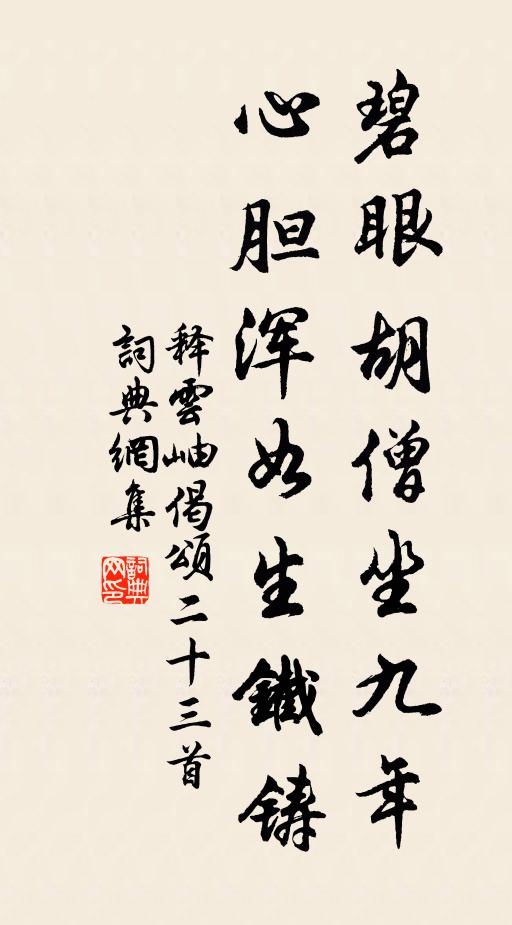 碧眼胡僧坐九年
心胆浑如生鐵铸
释雲岫偈頌二十三首
詞典網集
詞典
网印